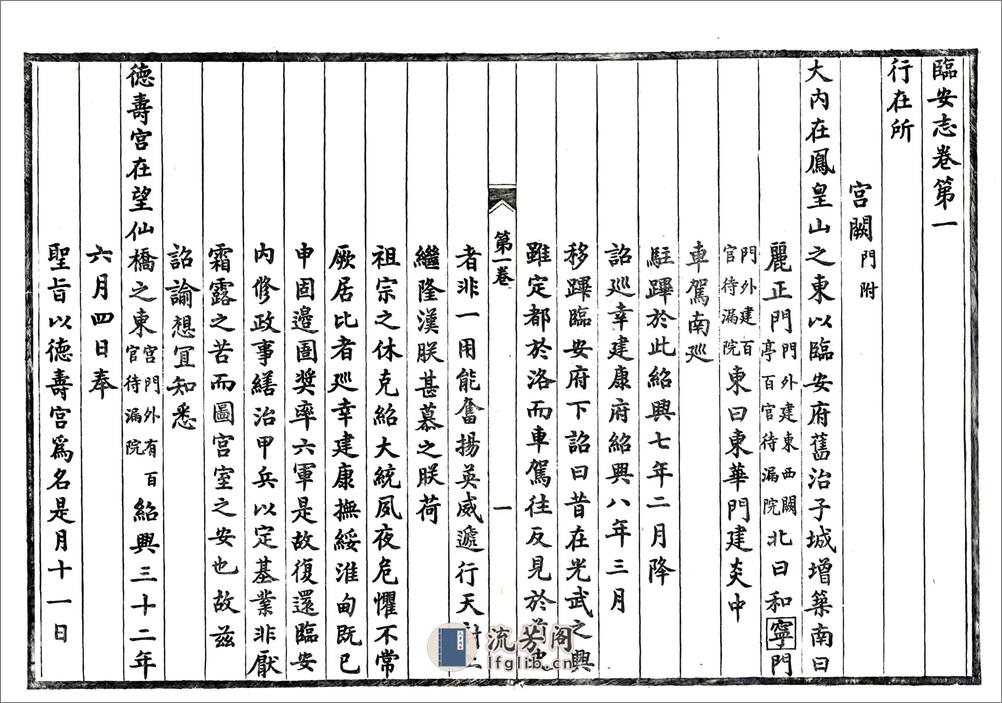 臨安志卷第一
行在所
宮闕 門附
大内在鳳皇山之東以臨安府舊治子城增築南曰
麗正門 門外建東西闕亭百官待漏院 北曰和寧門
門外建百官待漏院 東曰東華門建炎中
車駕南廵
駐蹕於此紹興七年二月降
詔廵幸建康府紹興八年三月
移蹕臨安府下詔曰昔在光武之興
雖定都於洛而車駕往反見於
第一卷 一
者非一用能奮揚英威遞行天討上
繼隆漢朕甚慕之朕荷
祖宗之休克紹大統夙夜危懼不常
厥居比者廵幸建康撫綏淮甸既已
申固邊圖奬率六軍是故復還臨安
内修政事繕治甲兵以定基業非厭
霜露之苦而圖宮室之安也故兹
詔諭想冝知悉
德壽宮在望仙橋之東 宮門外有百官待漏院 紹興三十二年
六月四日奉
聖旨以德壽宮爲名是月十一日
流芳阁
lfglib.cn